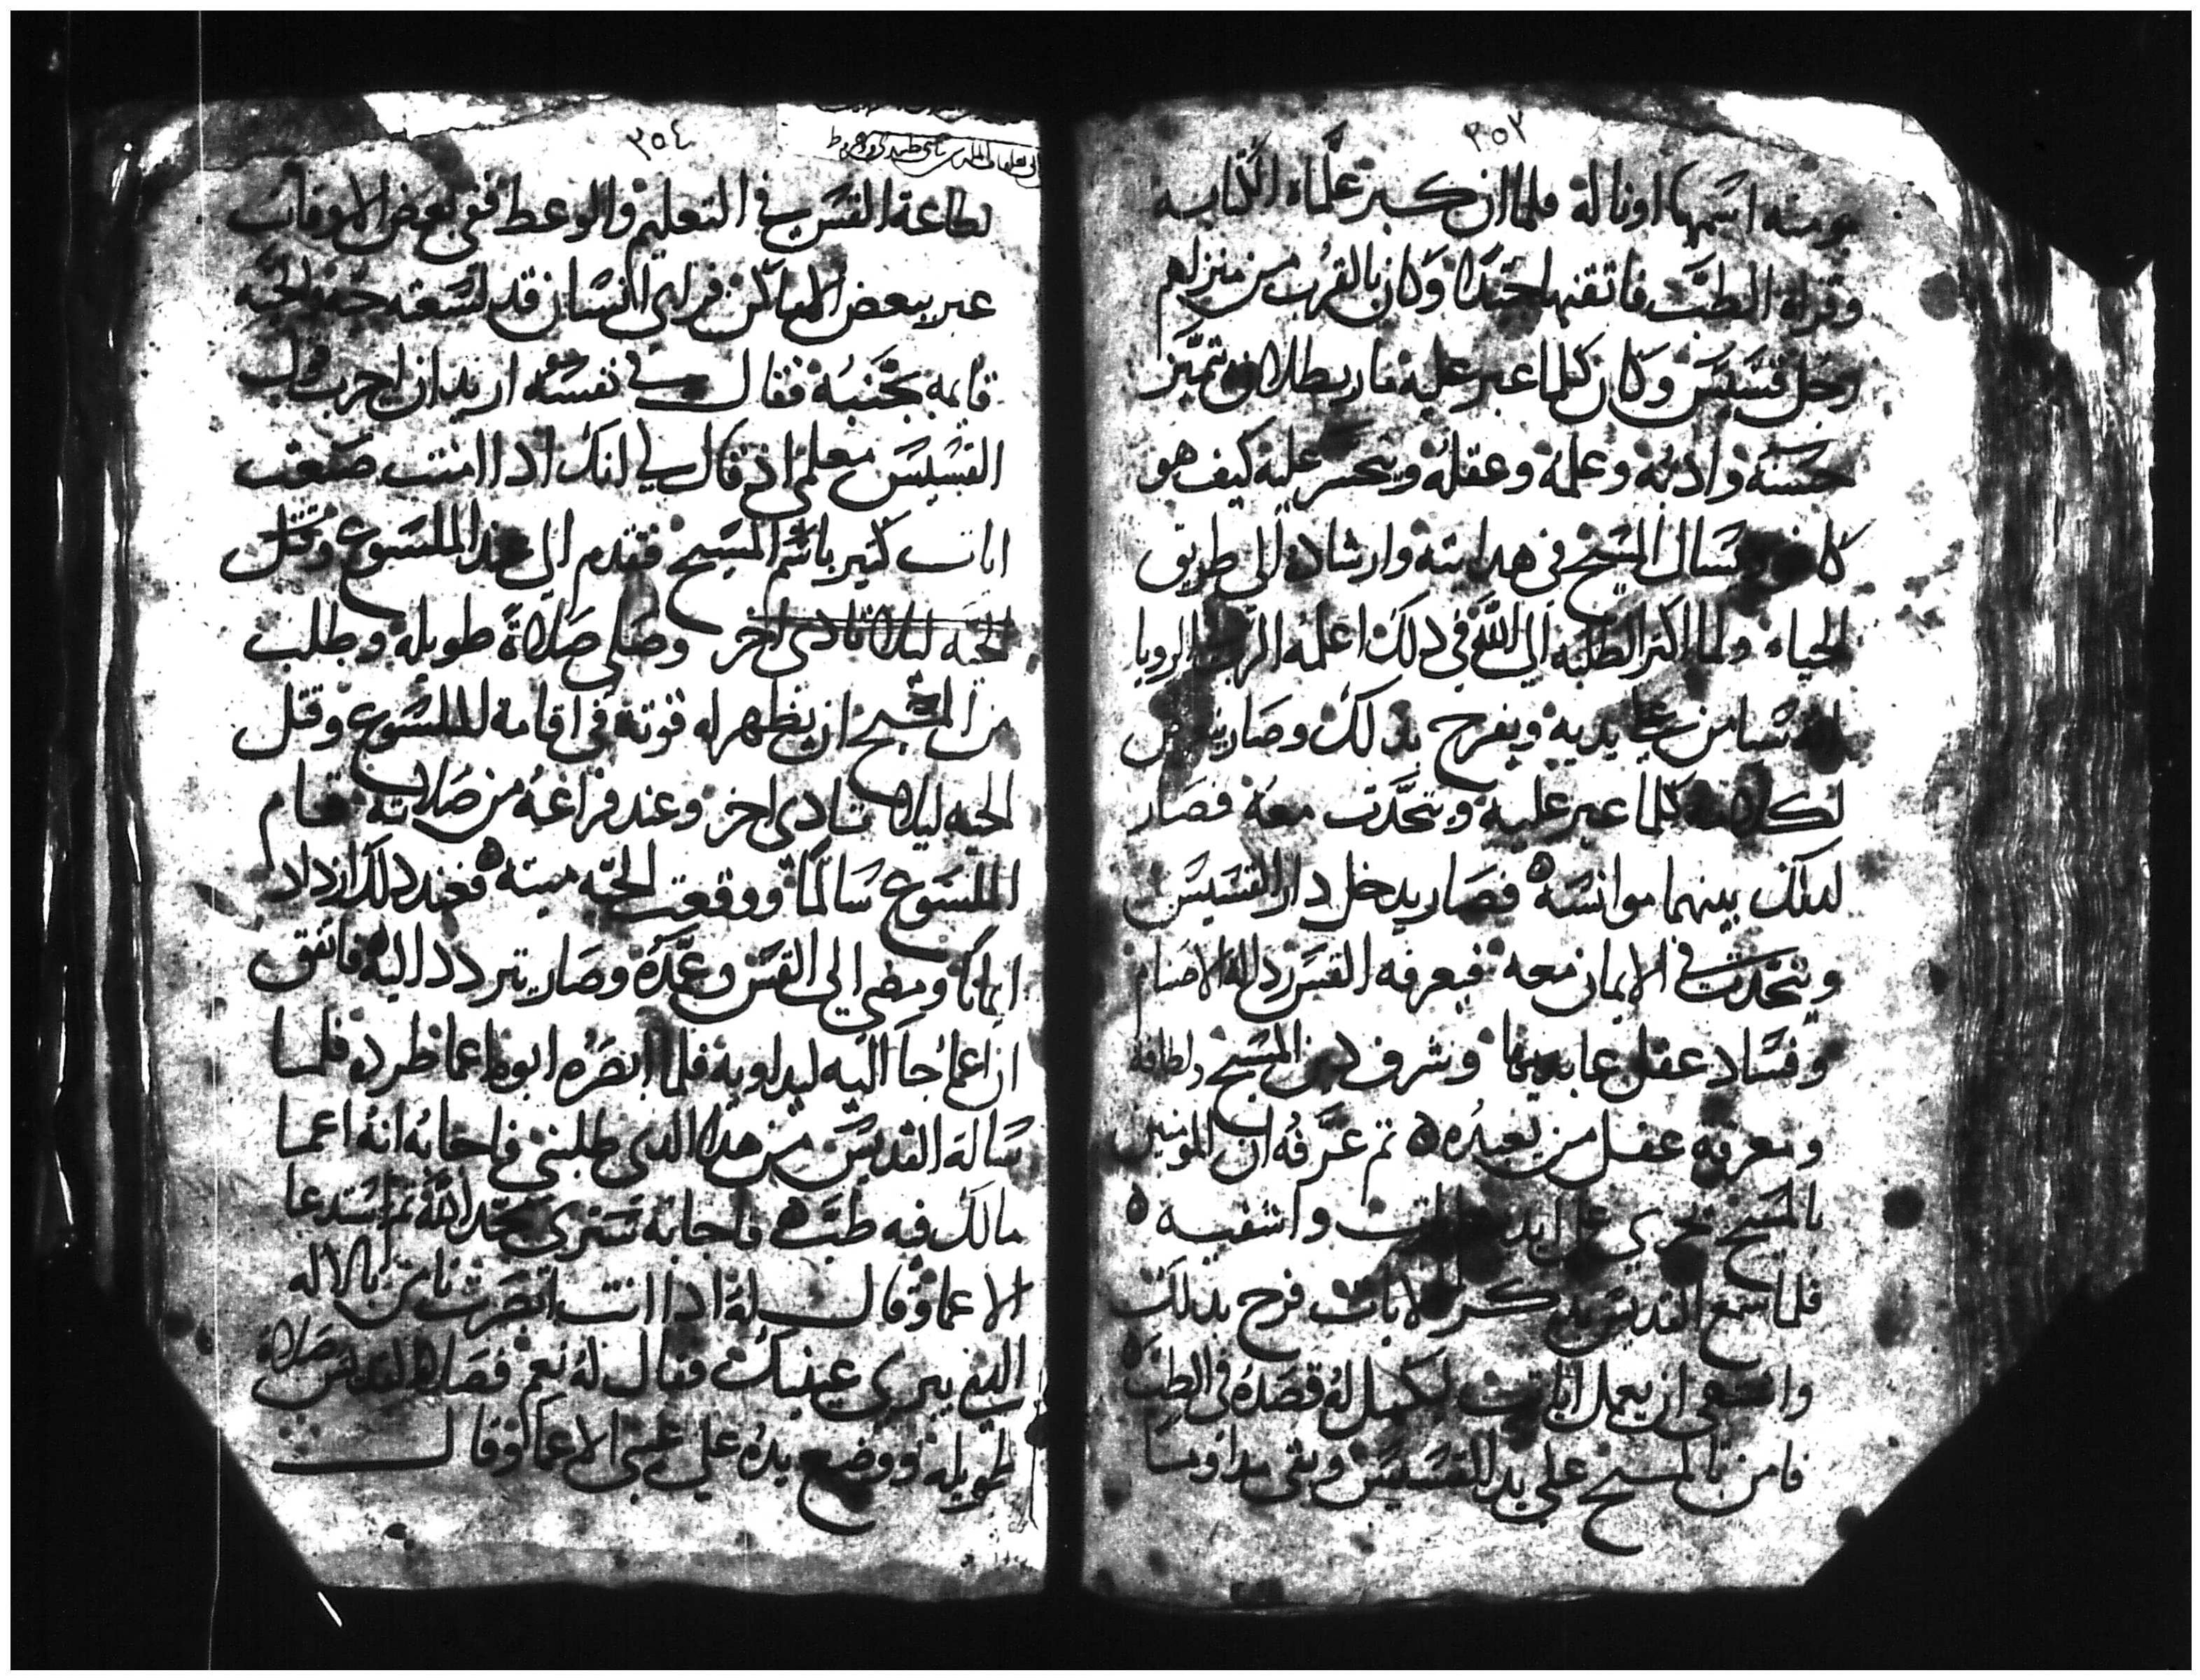 ٣٥٣
مومنه اسمها اونالة فلما ان كبر علماه الكتابه
وقراه الطب فاتقنها جيدًا وكان بالقرب من منزلهم
رجل قسيس وكان كلما عبر عليه ماريطلان يتميز
حسنة وادبه وعلمه وعقله ويتحسر عليه كيف هو
يسال المسيح في هدايته وارشاده الي طريق
الحياه ولما اكتر الطلبه الي الله في دلك اعلمه الرب الروبا
يديه ويفرح بدلك وصار
كلما عبر عليه ويتحدت معه فصار
لدلك بينهما موانسه فصار يدخل دار القسيس
ويتحدت في الايمان معه فيعرفه القس ردالة الاصنام
وفساد عقل عابديها وشرف دين المسيح ولطافة
ومعرفه عقل من يعبده ٥ تم عرفه ان المومنين
بالمسيح تجري علي ايديهم ايات واشفيه ٥
فلما سمع القديس بدكر الايات فرح بدلك
ان يعمل ايات ليكمل له قصده في الطب ٥
فامن بالمسيح علي يد القسيس وبقي مداومًا
٣٥٤
لطاعة القس في التعليم والوعط ففي بعض الاوقات
عبر ببعض الاماكن فراي انسان قد لسعته حيه والحيه
قايمه بجنبه فقال في نفسه اريد ان اجرب قول
القسيس معلمي اذ قال لي انك ادا امنت صنعت
ايات كتير باسم المسيح فتقدم الي عند الملسوع وقتل
الحيه ليلا تادي اخر وصلي صلاة طويله وطلب
من المسيح ان يظهر له قوته في اقامة الملسوع وقتل
الحيه ليلا تادي اخر وعند فراغه من صلاته قام
الملسوع سالمًا ووقعت الحيه ميته ٥ فعند دلك ازداد
ايمانًا ومضي الي القس وعمده وصار يتردد اليه فاتفق
ان اعما جا اليه ليداويه فلما ابصره ابوه اعما طرده فلما
ساله القديس من هدا الدي طلبني فاجابه انه اعما
مالك فيه طب ٥ فاجابه ستري مجد الله تم استدعا
الاعما وقال له ادا انت ابصرت تامن بالاله
الدي يبري عينيك فقال له نعم فصلا القديس صلاة
طويله ووضع يده علي عيني الاعما وقال